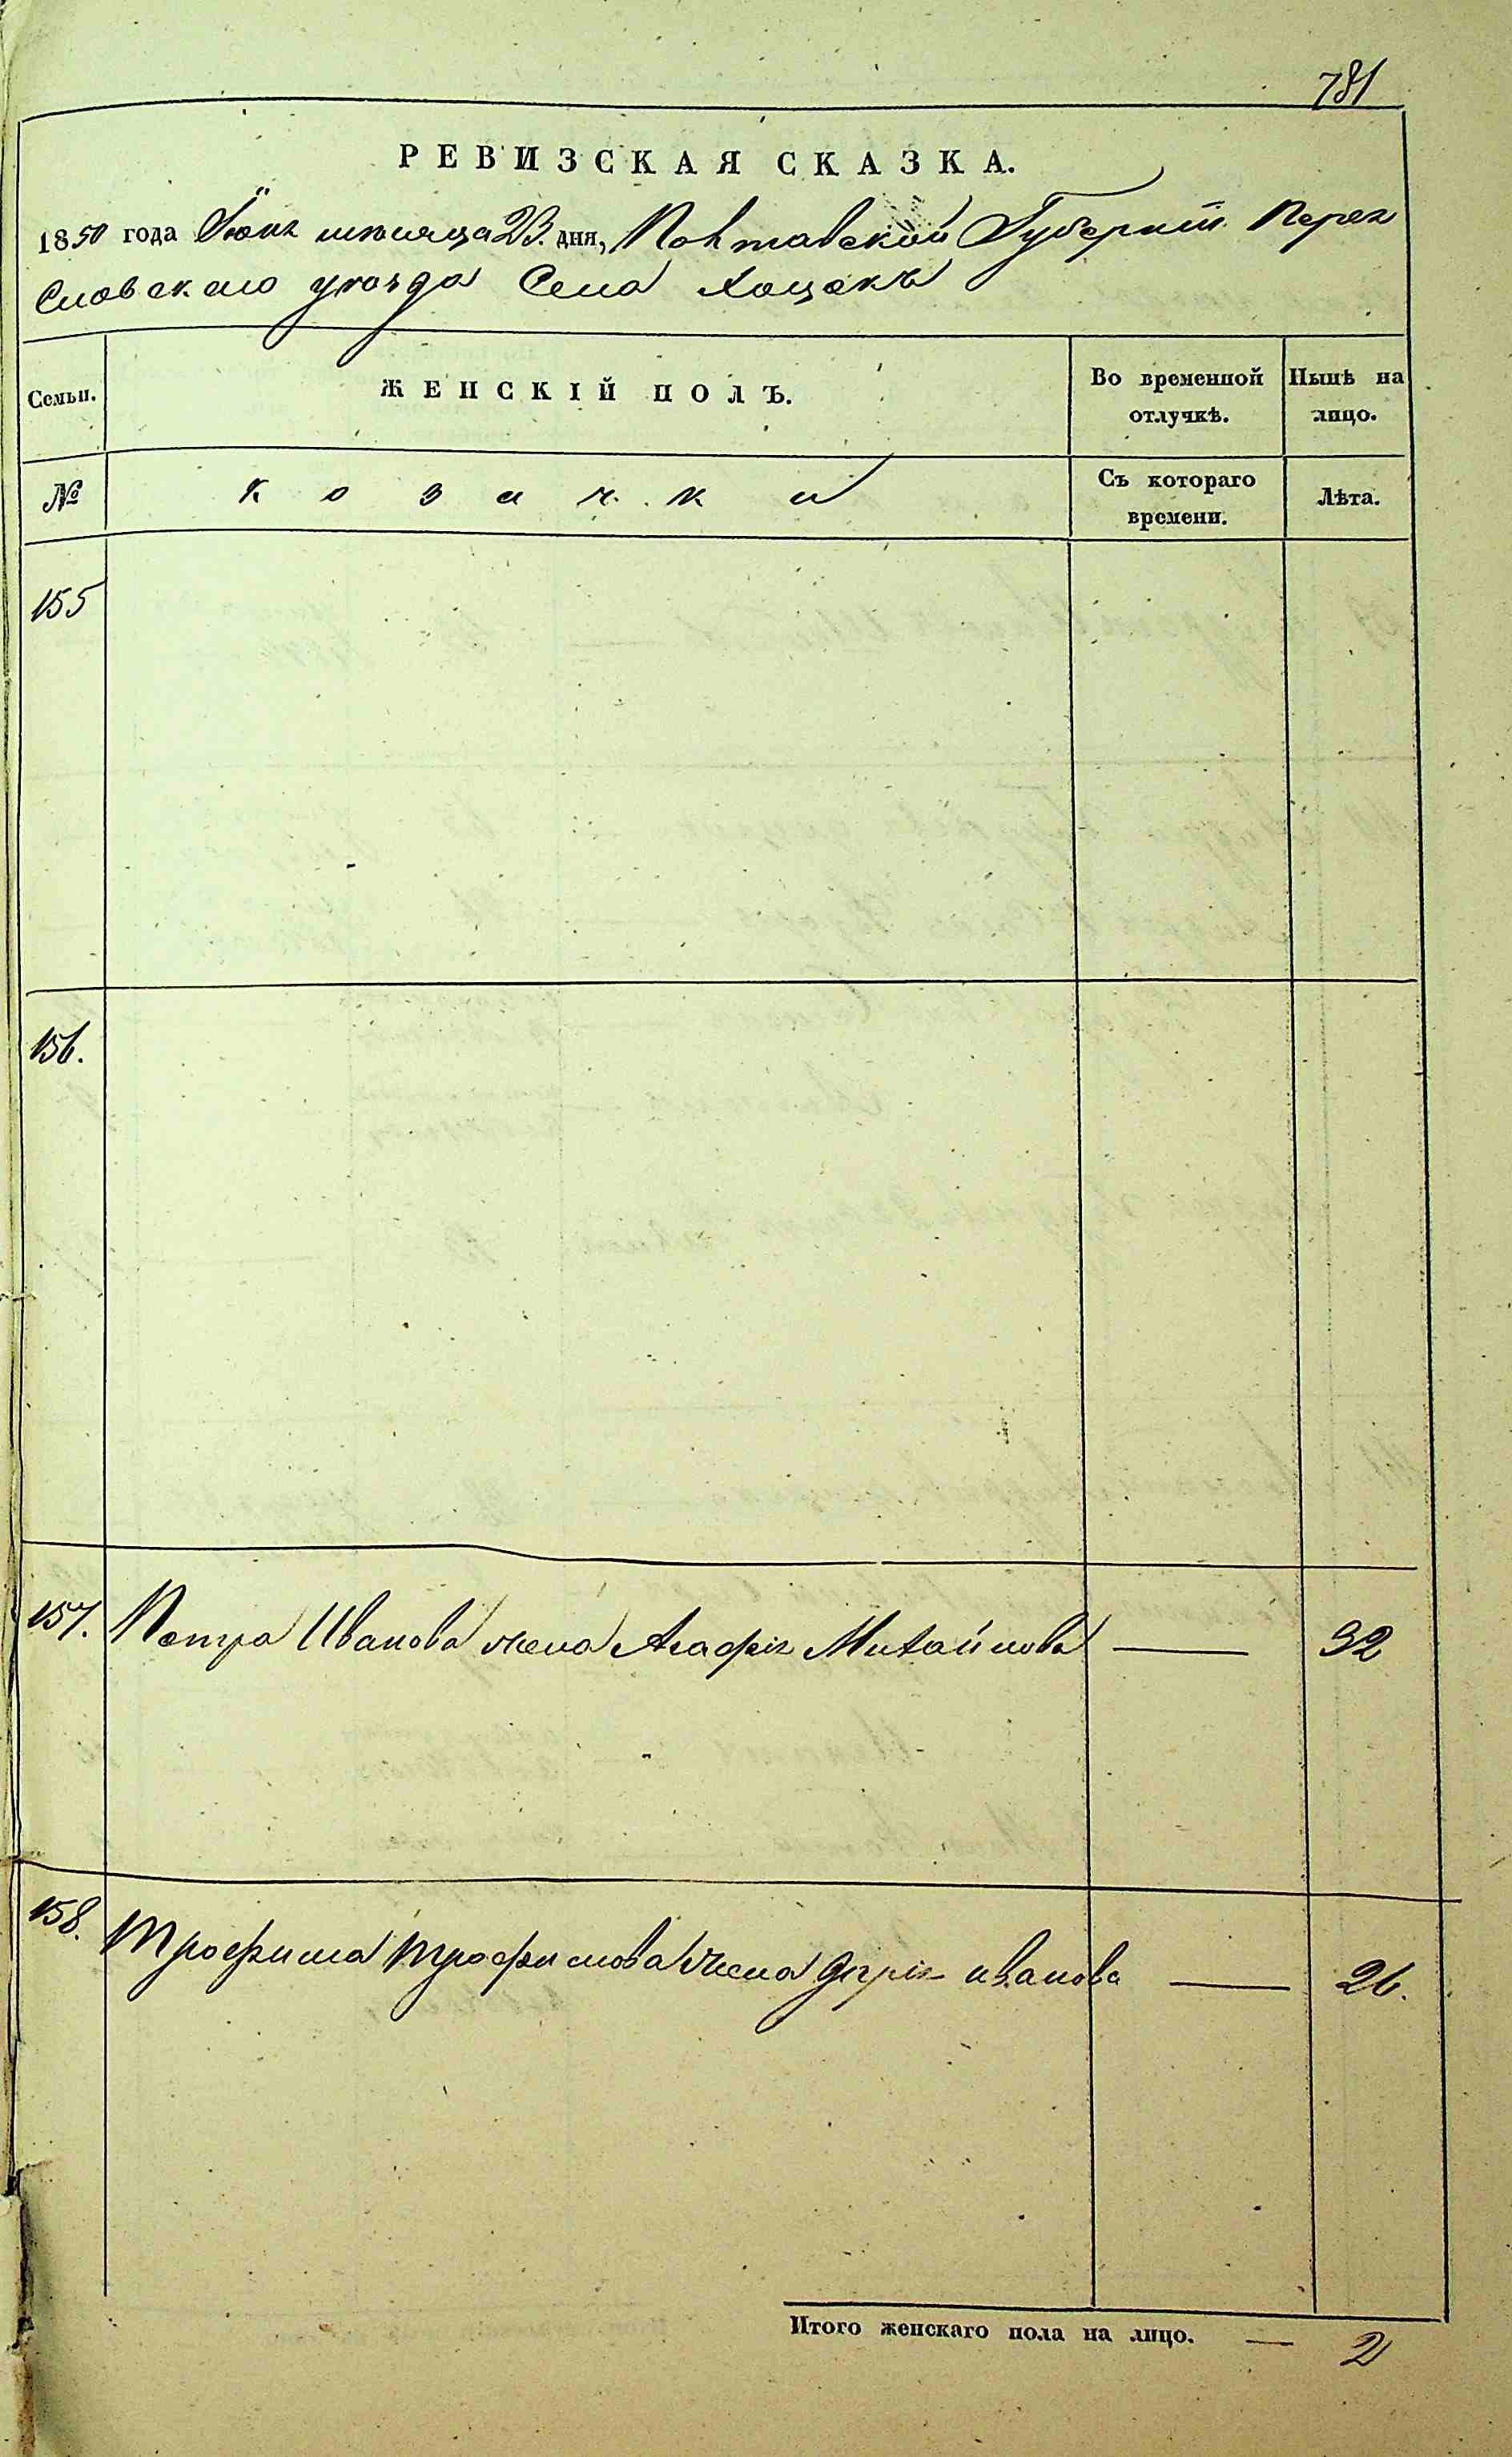 781
РЕВИЗСКАЯ СКАЗКА.
1850 года Іюня мѣсяца 23. дня, Полтавской Губерніи Перея
славскаго уѣзда Села Хоцекъ
Семьи. ЖЕНСКІЙ ПОЛЪ. Во временной отлучкѣ. Нынѣ на лицо.
№ козачки Съ котораго времени. Лѣта.
155
156.
157. Петра Иванова жена Агафія Михайлова — 32
158. Трофима Трофимова жена Дарія иванова — 26.
Итого женскаго пола на лицо. — 2